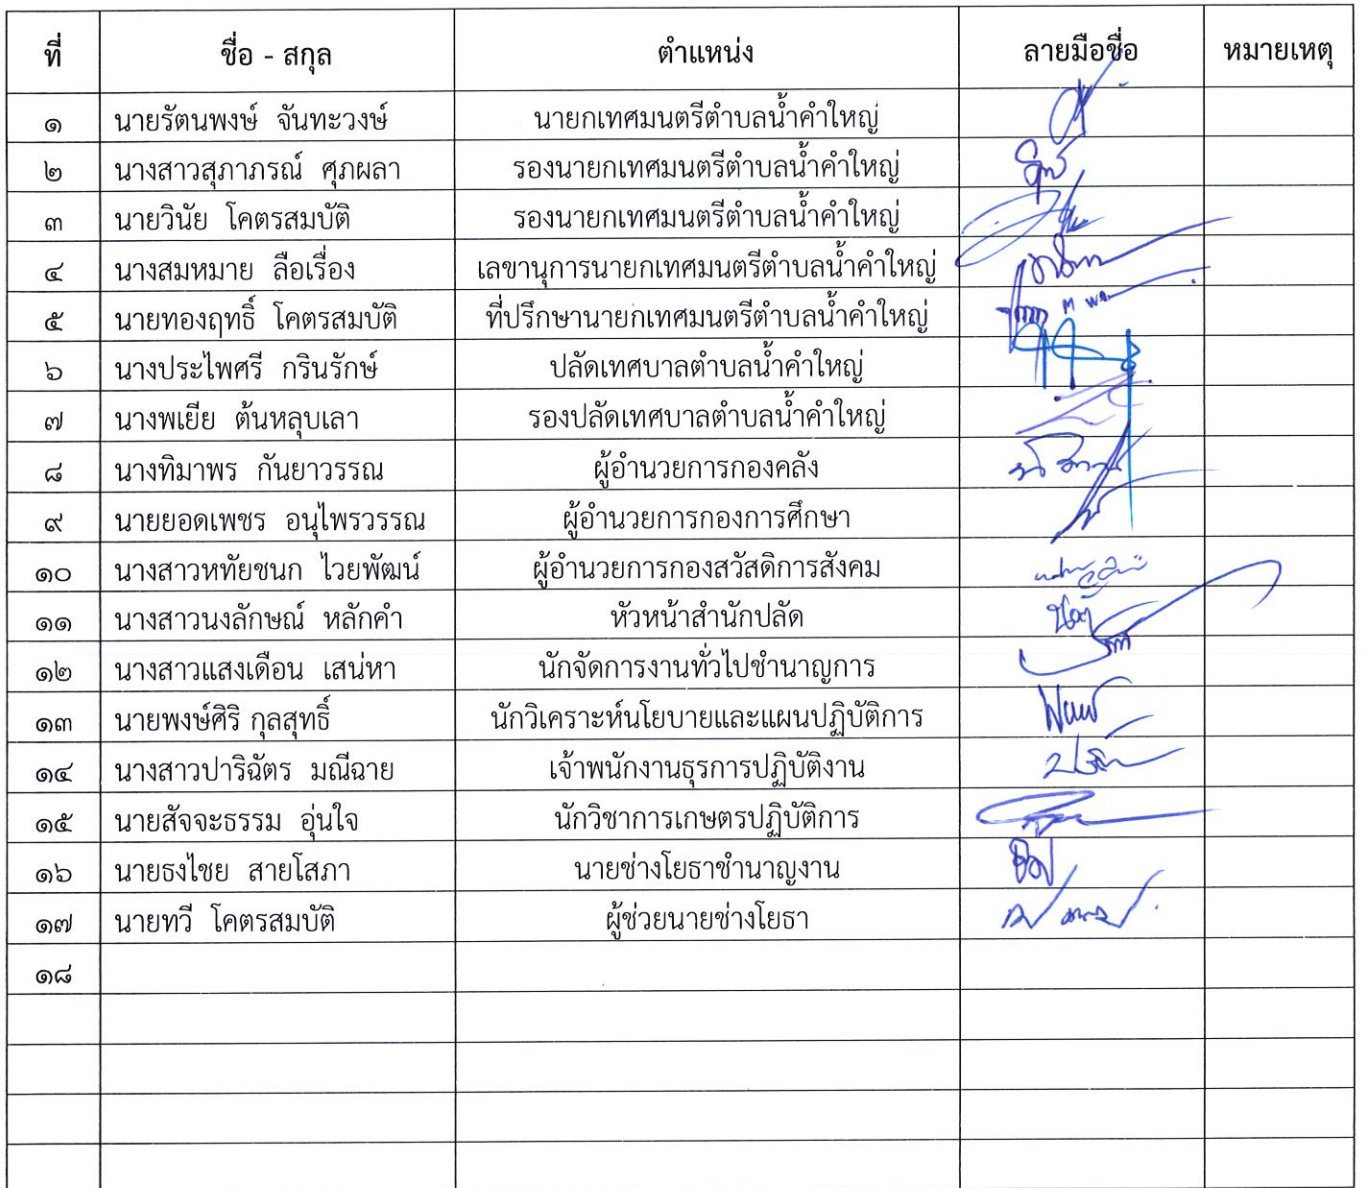 ที่ ชื่อ - สกุล ตำแหน่ง ลายมือชื่อ หมายเหตุ
๑ นายรัตนพงษ์ จันทะวงษ์ นายกเทศมนตรีตำบลน้ำคำใหญ่
๒ นางสาวสุภาภรณ์ ศุภผลา รองนายกเทศมนตรีตำบลน้ำคำใหญ่
๓ นายวินัย โคตรสมบัติ รองนายกเทศมนตรีตำบลน้ำคำใหญ่
๔ นางสมหมาย ลือเรื่อง เลขานุการนายกเทศมนตรีตำบลน้ำคำใหญ่
๕ นายทองฤทธิ์ โคตรสมบัติ ที่ปรึกษานายกเทศมนตรีตำบลน้ำคำใหญ่
๖ นางประไพศรี กรินรักษ์ ปลัดเทศบาลตำบลน้ำคำใหญ่
๗ นางพเยีย ต้นหลุบเลา รองปลัดเทศบาลตำบลน้ำคำใหญ่
๘ นางทิมาพร กันยาวรรณ ผู้อำนวยการกองคลัง
๙ นายยอดเพชร อนุไพรวรรณ ผู้อำนวยการกองการศึกษา
๑๐ นางสาวหทัยชนก ไวยพัฒน์ ผู้อำนวยการกองสวัสดิการสังคม
๑๑ นางสาวนงลักษณ์ หลักคำ หัวหน้าสำนักปลัด
๑๒ นางสาวแสงเดือน เสน่หา นักจัดการงานทั่วไปชำนาญการ
๑๓ นายพงษ์ศิริ กุลสุทธิ์ นักวิเคราะห์นโยบายและแผนปฏิบัติการ
๑๔ นางสาวปาริฉัตร มณีฉาย เจ้าพนักงานธุรการปฏิบัติงาน
๑๕ นายสัจจะธรรม อุ่นใจ นักวิชาการเกษตรปฏิบัติการ
๑๖ นายธงไชย สายโสภา นายช่างโยธาชำนาญงาน
๑๗ นายทวี โคตรสมบัติ ผู้ช่วยนายช่างโยธา
๑๘